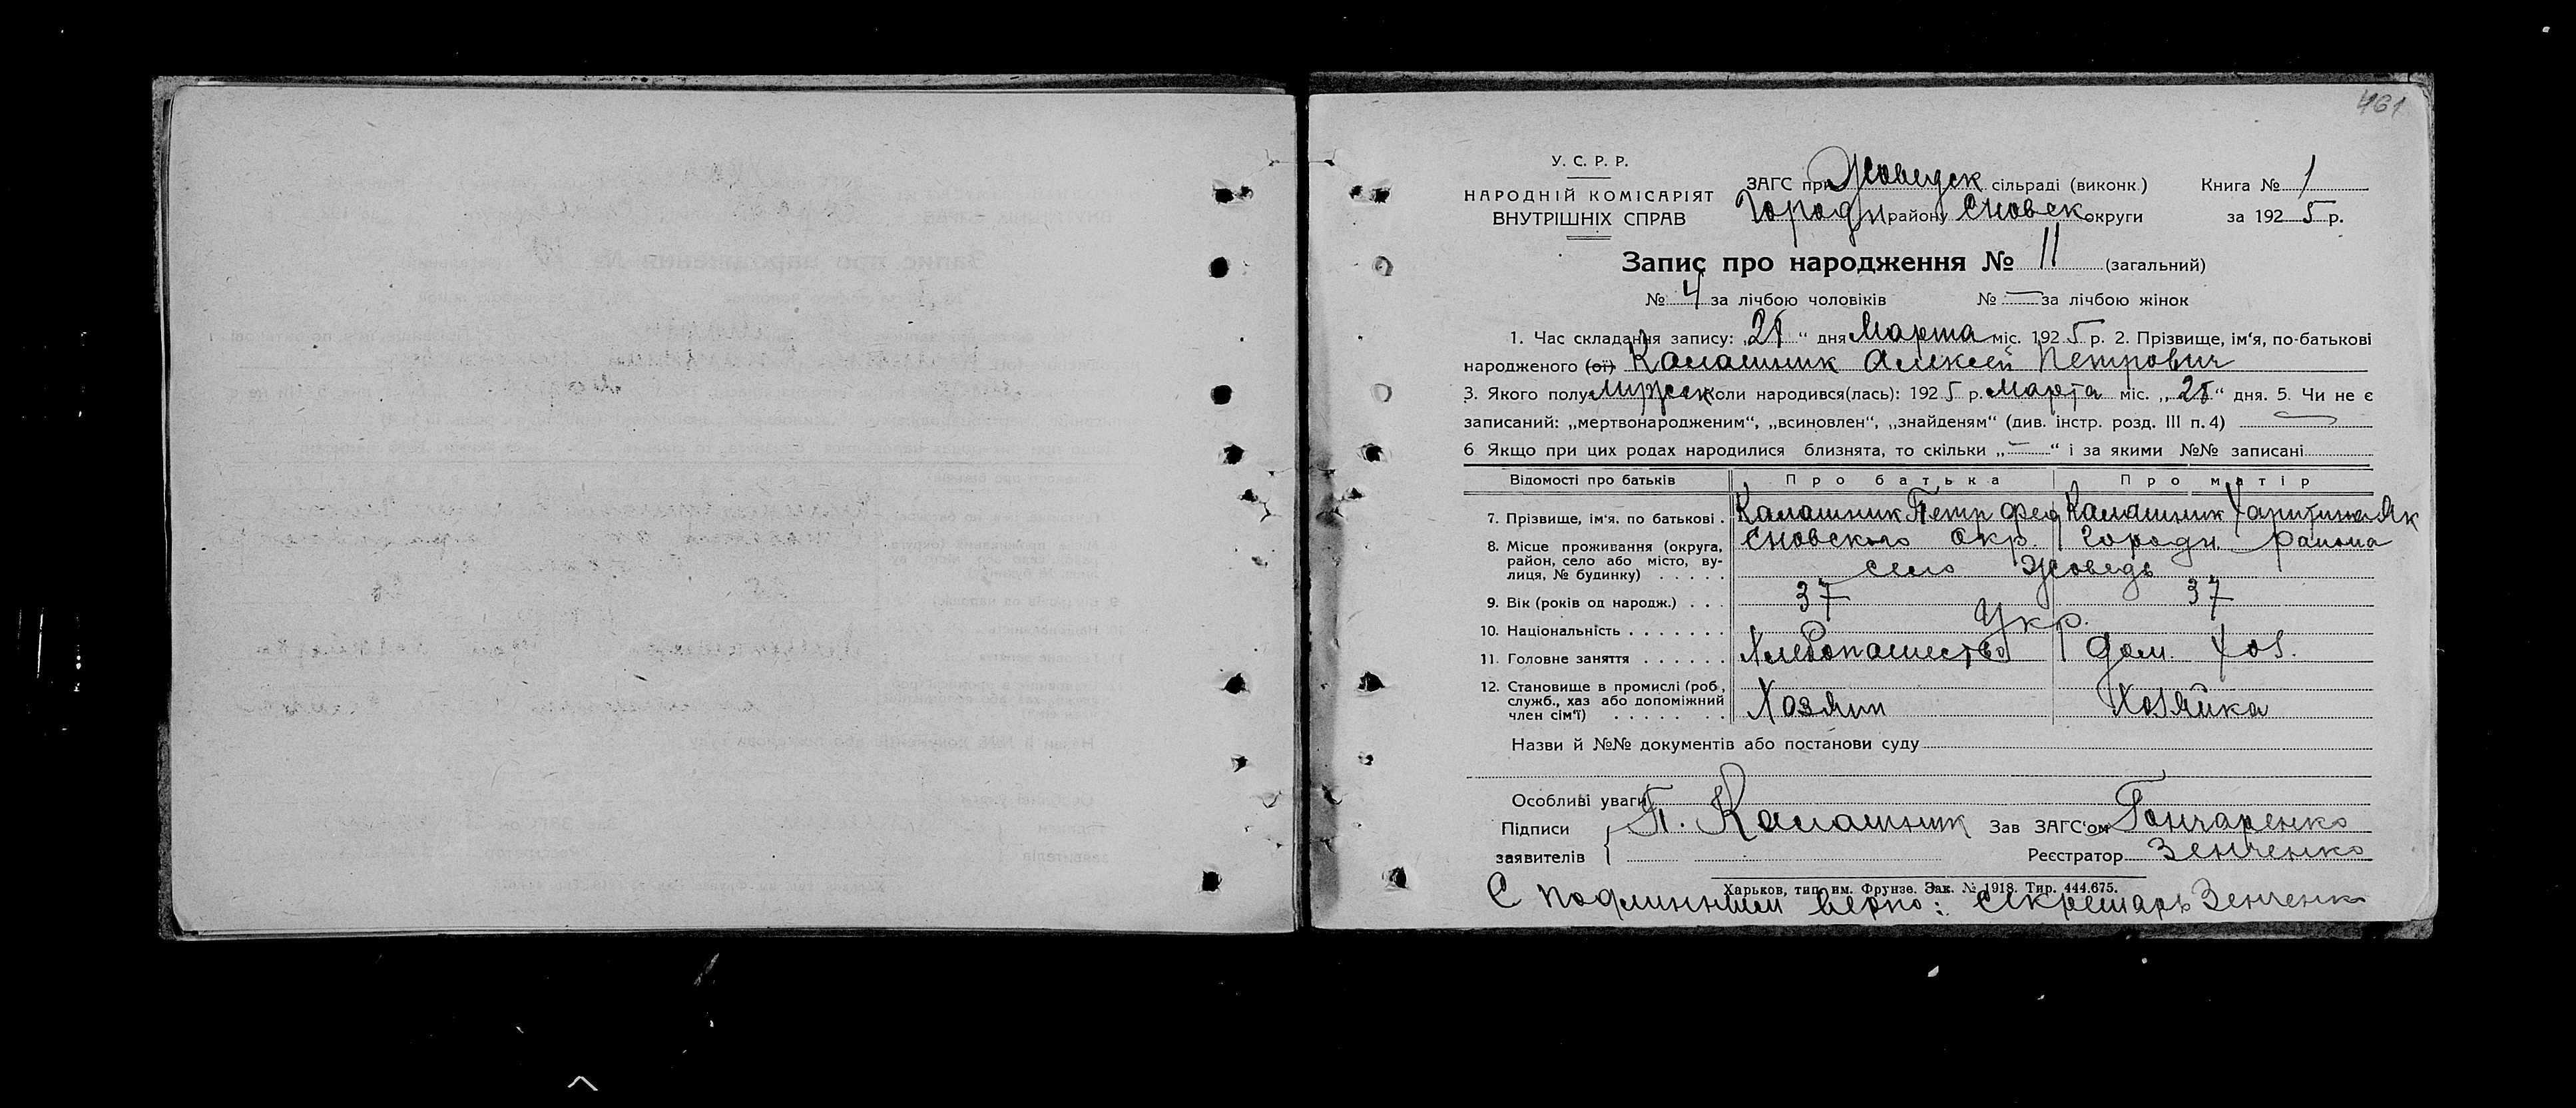 461
У. С. Р. Р.
НАРОДНІЙ КОМІСАРІЯТ
ВНУТРІШНІХ СПРАВ
ЗАГС при Жоведск сільраді (виконк.) Книга № 1
Городн району Сновск округи за 1925 р.
Запис про народження № 11 (загальний)
№ 4 за лічбою чоловіків № — за лічбою жінок
1. Час складання запису: „28“ дня Марта міс. 1925 р. 2. Прізвище, ім'я, по-батькові
народженого (ої) Калашник Алексей Петрович
3. Якого полу Мужеск коли народився(лась): 1925 р. Марта міс. „28“ дня. 5. Чи не є
записаний: „мертвонародженим“, „всиновлен“, „знайденям“ (див. інстр. розд. III п. 4) —
6 Якщо при цих родах народилися близнята, то скільки „—“ і за якими №№ записані
Відомості про батьків Про батька Про матір
7. Прізвище, ім'я. по батькові . Калашник Петр Фед Калашник Харитина Як
8. Місце проживання (округа, район, село або місто, вулиця, № будинку) . . . . . Сновского Окр. Городн. района
село Жоведь
9. Вік (років од народж.) . . . 37 37
10. Національність . . . . . . . Укр.
11. Головне заняття . . . . . . Хлебопашество Дом. хоз.
12. Становище в промислі (роб, служб., хаз або допоміжний член сім'ї) . . . . . . . Хозяин Хозяйка
Назви й №№ документів або постанови суду
Особливі уваги
Підписи П. Калашник Зав ЗАГС'ом Гончаренко
заявителів Реєстратор Зенченко
Харьков, тип. им. Фрунзе. Зак. № 1918. Тир. 444.675.
С подлинным верно: Секретарь Зенченко